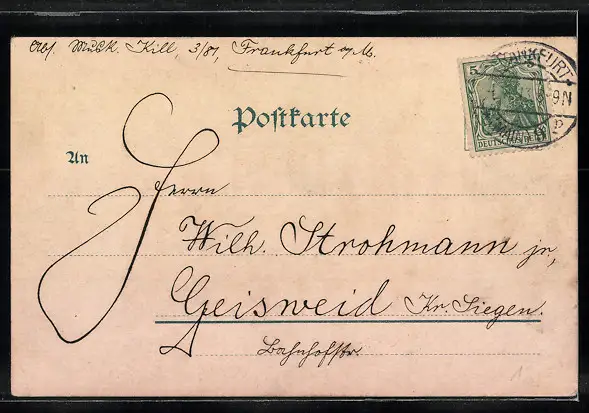 Abs. Musk. Kill, 3/81, Frankfurt a/M.
5
FRANKFURT
9N
DEUTSCHES REICH
Postkarte
An
Herrn
Wilh. Strohmann jr,
Geisweid Kr. Siegen.
Bahnhofstr.
1